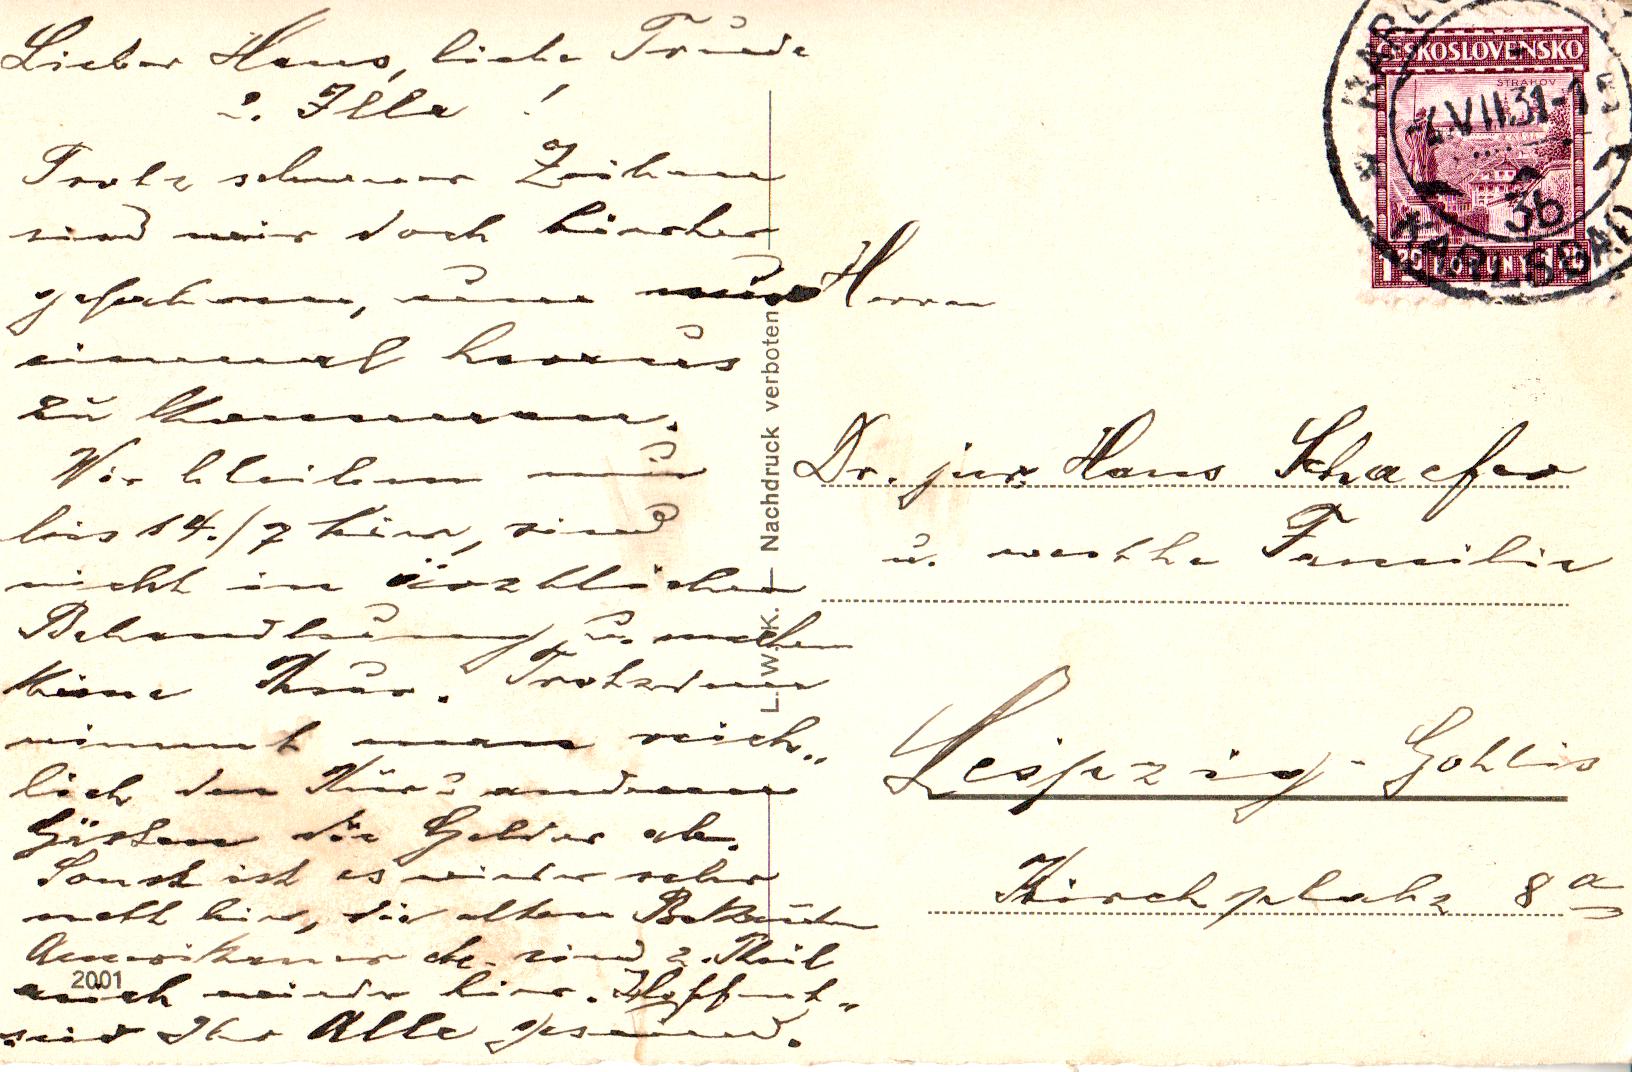 Lieber Hans, liebe Trude
u. Illa!
Trotz schwerer Zeiten
sind wir doch hierher
gefahren, um
einmal heraus
zu kommen.
Wir bleiben nur
bis 14./7 hier, sind
nicht in ärztlicher
Behandlung u. machen
keine Kur. Trotzdem
nimmt man reich-
lich den Kur u anderen
Gästen die Gelder ab.
Sonst ist es wieder sehr
nett hier, die alten
Amerikaner etc. sind z. Theil
auch wieder hier. Hoffent-
seid Ihr Alle gesund.
2001
L. W. K. — Nachdruck verboten
ČESKOSLOVENSKO
STRAHOV
1.20 KORUNY 1.20
VII 31-1
3b
KARLSBAD
Herrn
Dr. jur. Hans Schaefer
u. werthe Familie
Leipzig-Gohlis
Kirchplatz 8a